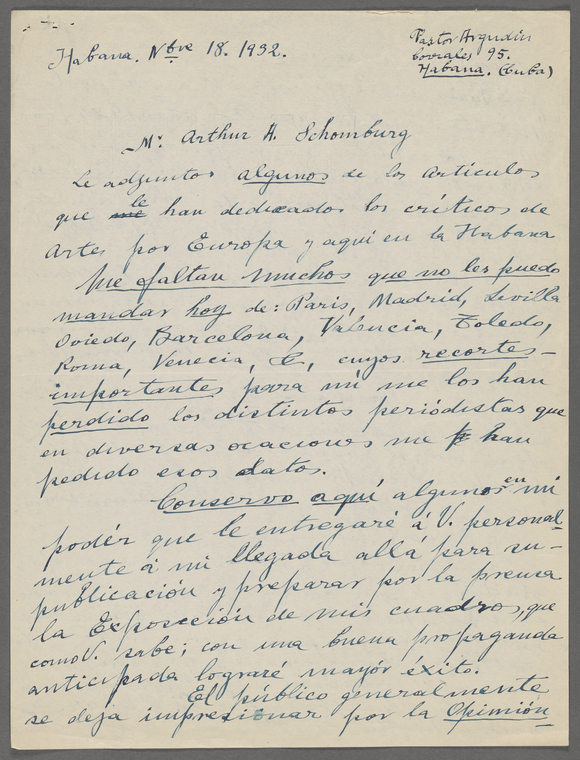 Habana. Nbre 18. 1932.
Pastor Argudín
Corrales 95.
Habana. (Cuba)
Mr. Arthur A. Schomburg
Le adjuntos algunos de los Artículos
que me le han dedicados los críticos de
Artes por Europa y aquí en la Habana
Me faltan muchos que no les puedo
mandar hoy de: Paris, Madrid, Sevilla
Oviedo, Barcelona, Valencia, Toledo,
Roma, Venecia, &, cuyos recortes-
importantes para mi me los han
perdido los distintos periódistas que
en diversas ocaciones me han
pedido esos datos.
Conservo aquí algunos en mi
podér que le entregaré á V. personal-
mente á mi llegada allá para su-
publicación y preparar por la prensa
la Exposcción de mis cuadros, que
como V. sabe; con una buena propaganda
anticipada lograré mayór éxito.
El público generalmente
se deja impresionar por la Opinión